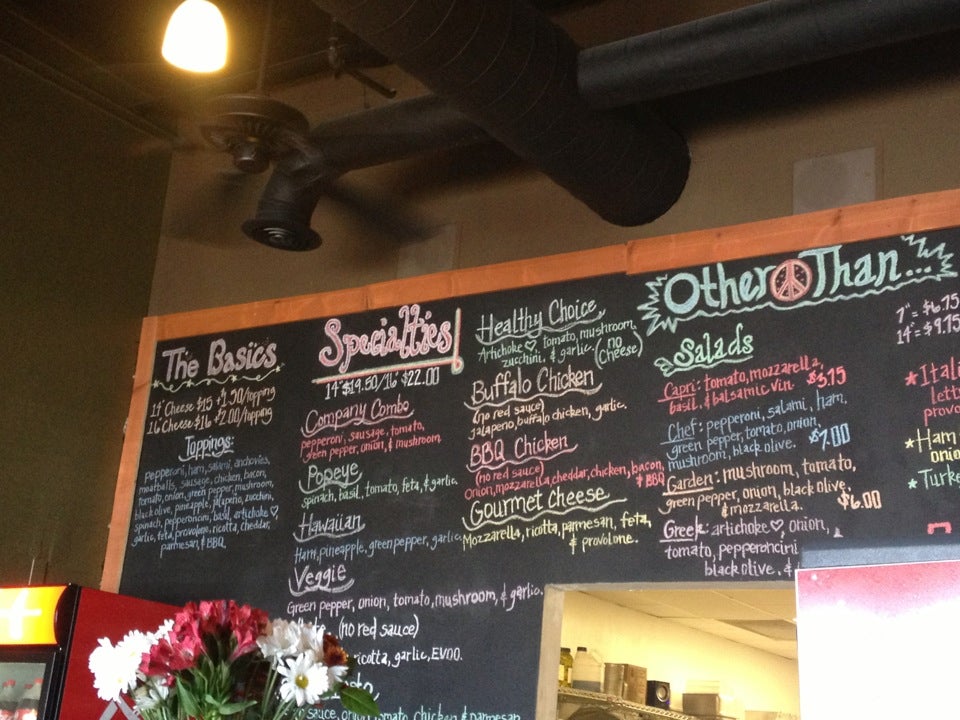 The Basics
14" Cheese $15 +1.90/topping
16" Cheese $16 +2.00/topping
Toppings:
pepperoni, ham, salami, anchovies,
meatballs, sausage, chicken, bacon,
tomato, onion, green pepper, mushroom,
black olive, pineapple, jalapeno, zucchini,
spinach, pepperoncini, basil, artichoke ♡,
garlic, feta, provolone, ricotta, cheddar,
parmesan, & BBQ.
Specialties
14" $19.50/16" $22.00
Company Combo
pepperoni, sausage, tomato,
green pepper, onion, & mushroom
Popeye
spinach, basil, tomato, feta, & garlic.
Hawaiian
Ham, pineapple, green pepper, garlic.
Veggie
Green pepper, onion, tomato, mushroom, & garlic.
(no red sauce)
ricotta, garlic, EVOO.
sauce, onion, tomato, chicken & parmesan
Healthy Choice
Artichoke ♡, tomato, mushroom,
zucchini, & garlic. (no
cheese)
Buffalo Chicken
(no red sauce)
jalapeno, buffalo chicken, garlic.
BBQ Chicken
(no red sauce)
Onion, mozzarella, cheddar, chicken, bacon,
& BBQ
Gourmet cheese
Mozzarella, ricotta, parmesan, feta,
& provolone.
Other Than...
Salads
Capri: tomato, mozzarella,
basil, & balsamic vin. $3.75
Chef: pepperoni, salami, ham,
green pepper, tomato, onion,
mushroom, black olive. $7.00
Garden: mushroom, tomato,
green pepper, onion, black olive,
& mozzarella. $6.00
Greek: artichoke ♡, onion,
tomato, pepperoncini
black olive, &
7" = $6.75
14" = $9.75
* Itali
lett
provo
* Ham
onio
* Turke